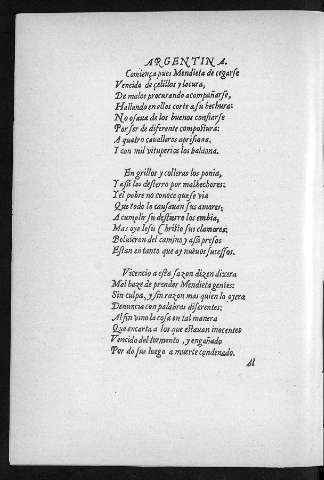 ARGENTINA.
Comiença pues Mendieta de cegarse
Vencido de çelillos y locura,
De malos procurando acompañarse,
Hallando en ellos corte a su hechura:
No osaua de los buenos confiarse
Por ser de diferente compostura:
A quatro caualleros aprisiona,
I con mil vituperios los baldona.
En grillos y colleras los ponia,
Y assi los desterro por malhechores:
Y el pobre no conoce que se via
Que todo lo causauan sus amores;
A cumplir su destierro los embia,
Mas oye Iesu Christo sus clamores;
Boluieron del camino y assi presos
Estan en tanto que ay nueuos sucessos.
Vicencio a esta sazon dizen dixera
Mal haze de prender Mendieta gentes:
Sin culpa, y sin razon mas quien lo oyera
Denuncia con palabras diferentes:
Al fin vino la cosa en tal manera
Que encarta a los que estauan inocentes
Vencido del tormento, y engañado
Por do fue luego a muerte condenado.
Al